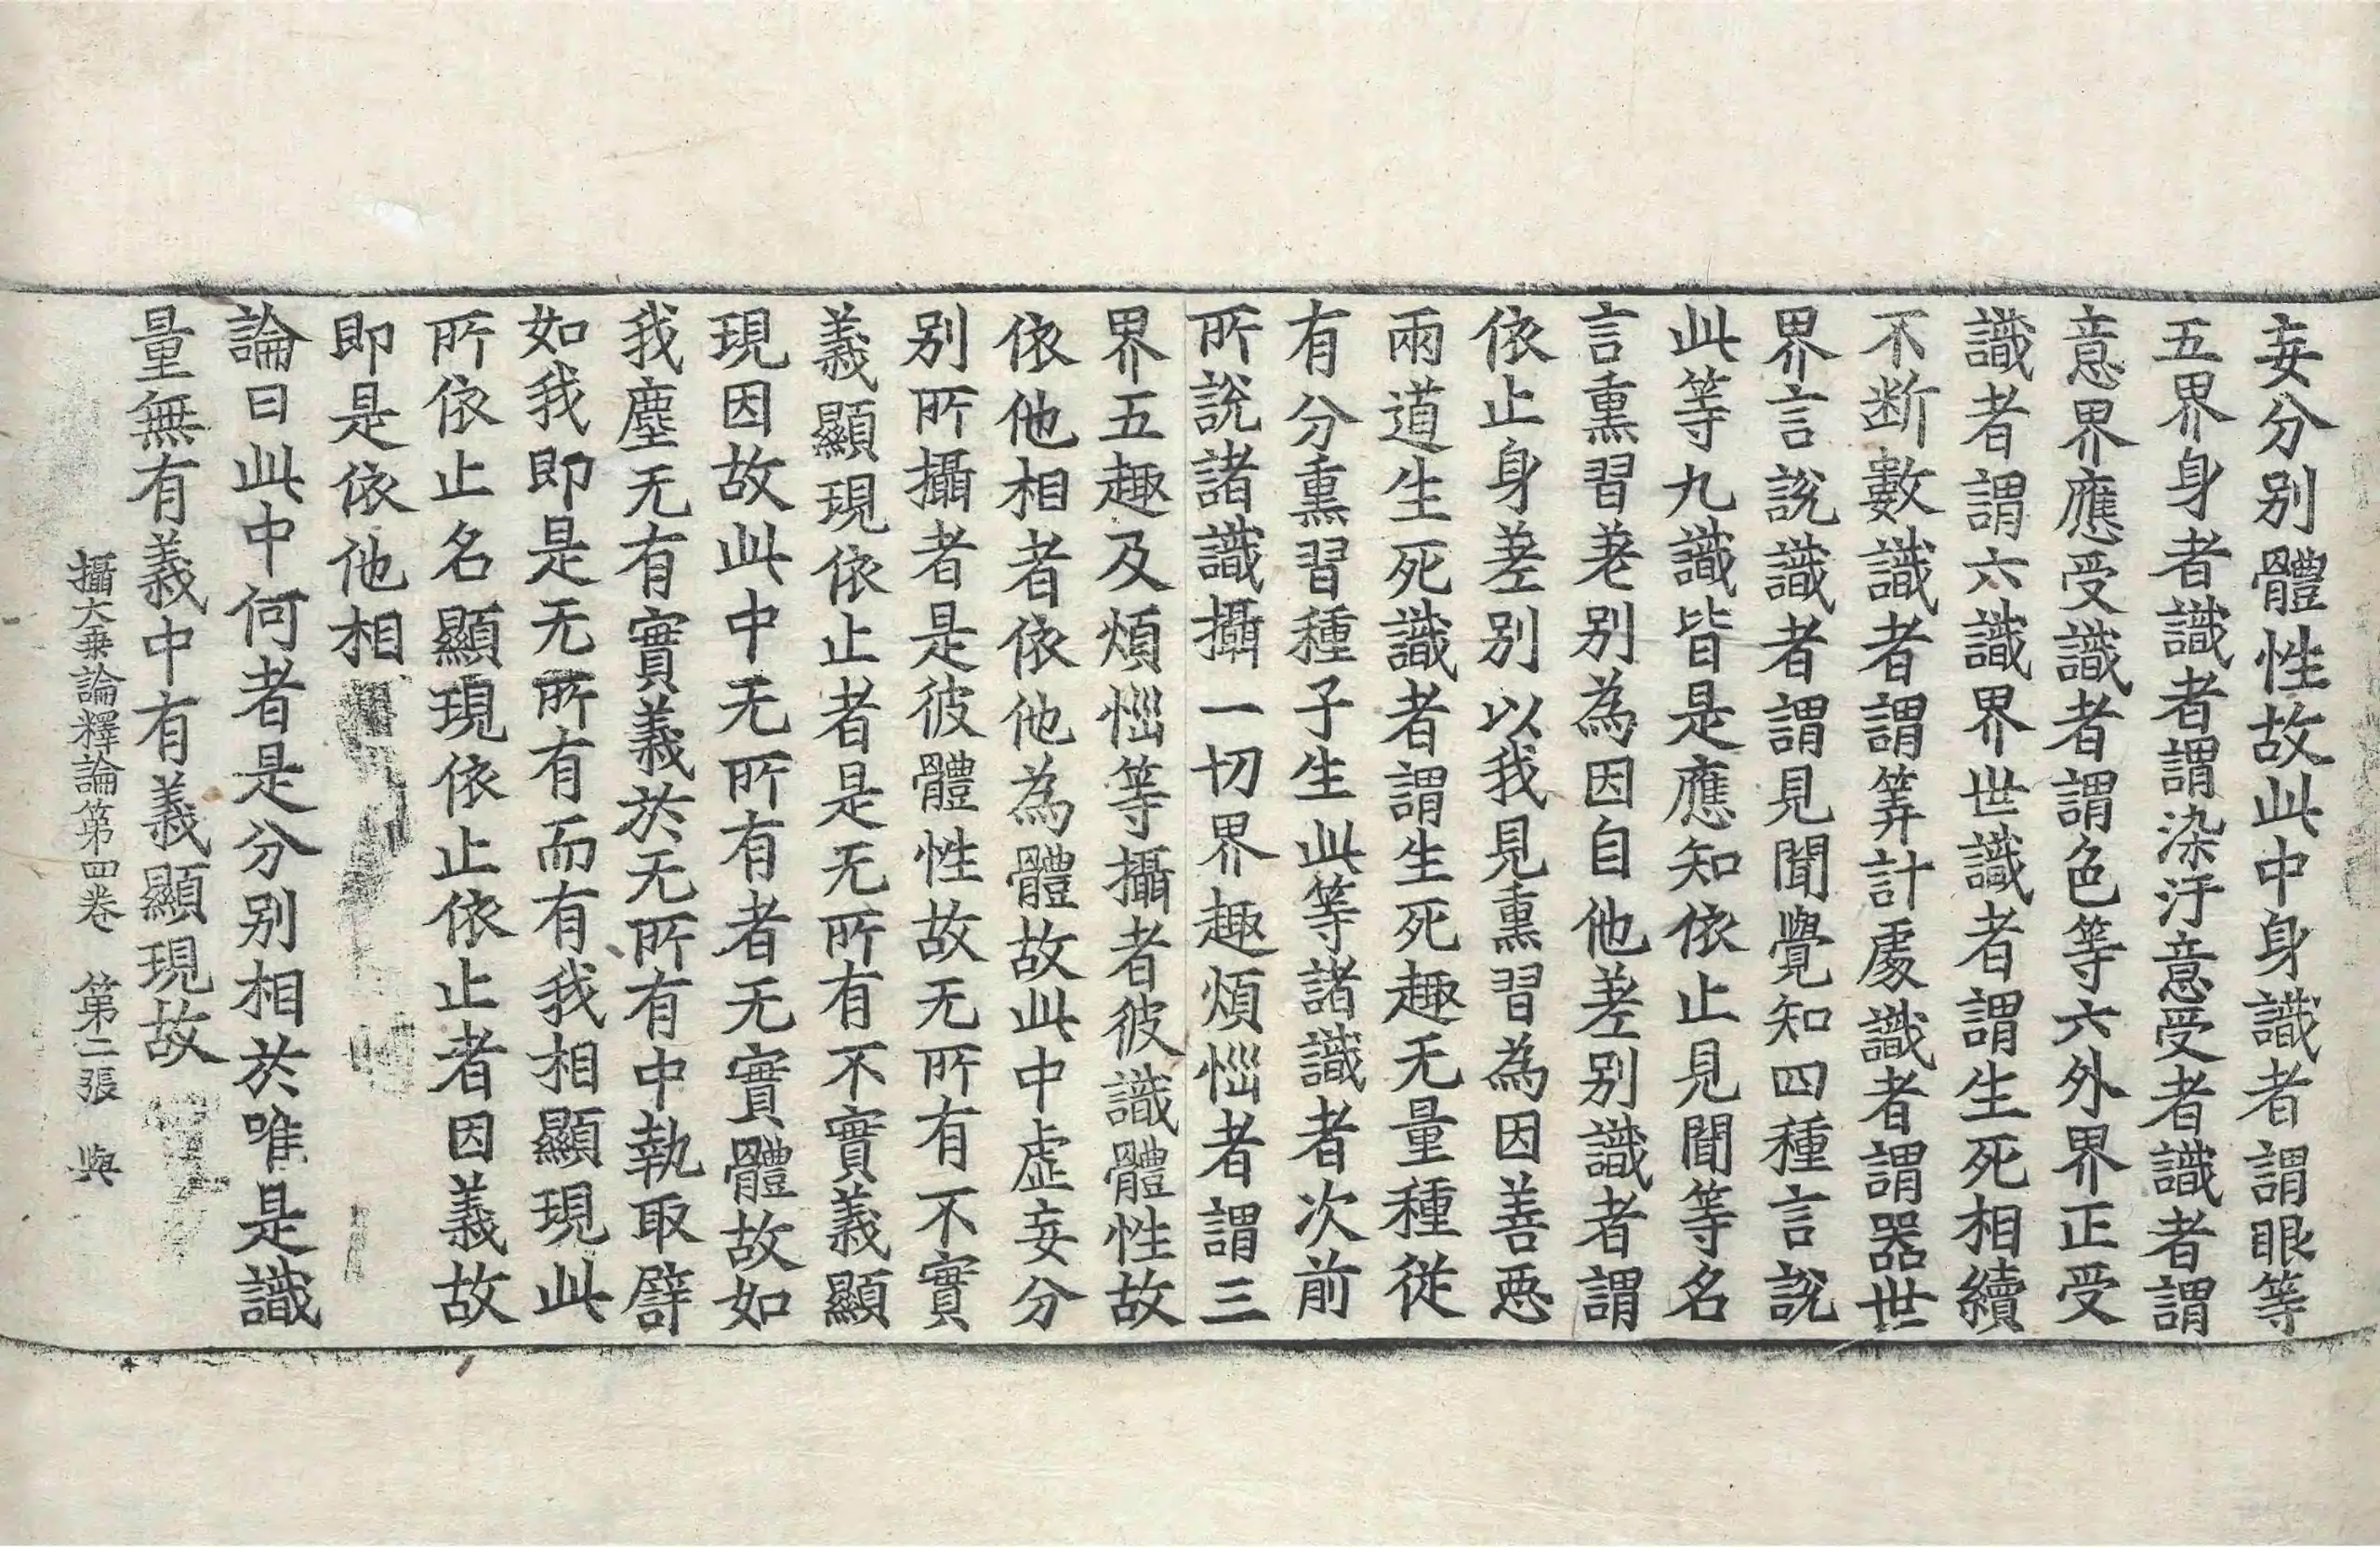 妄分別體性故此中身識者謂眼等
五界身者識者謂染汙意受者識者謂
意界應受識者謂色等六外界正受
識者謂六識界世識者謂生死相續
不断數識者謂筭計處識者謂器世
界言說識者謂見聞覺知四種言說
此等九識皆是應知依止見聞等名
言熏習差别為因自他差别識者謂
依止身差别以我見熏習為因善惡
兩道生死識者謂生死趣无量種從
有分熏習種子生此等諸識者次前
所說諸識攝一切界趣煩惱者謂三
界五趣及煩惱等攝者彼識體性故
依他相者依他為體故此中虛妄分
别所攝者是彼體性故无所有不實
義顯現依止者是无所有不實義顯
現因故此中无所有者无實體故如
我塵无有實義於无所有中執取譬
如我即是无所有而有我相顯現此
所依止名顯現依止依止者因義故
即是依他相
論曰此中何者是分别相於唯是識
量無有義中有義顯現故
攝大乗論釋論第四卷　第二張　與